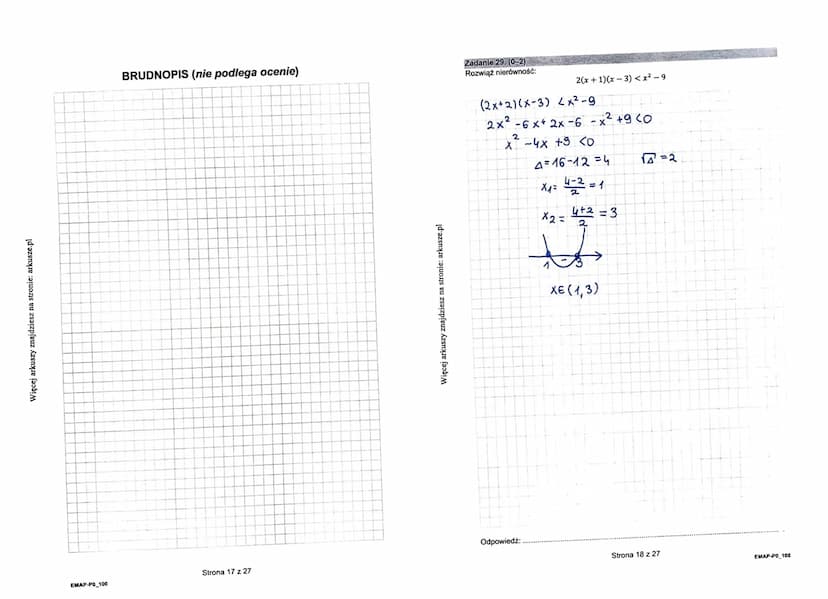 BRUDNOPIS (nie podlega ocenie)
Więcej arkuszy znajdziesz na stronie: arkusze.pl
Strona 17 z 27
EMAP-P0_100
Zadanie 29. (0–2)
Rozwiąż nierówność:
2(x + 1)(x − 3) < x² − 9
(2x+2)(x-3) < x²-9
2x² -6x+ 2x -6 -x² +9 <0
x² -4x +9 <0
Δ=16-12 =4 √Δ =2
x₁= (4-2)/2 = 1
x₂ = (4+2)/2 = 3
1 - 3
x∈(1,3)
Więcej arkuszy znajdziesz na stronie: arkusze.pl
Odpowiedź:
Strona 18 z 27
EMAP-P0_100